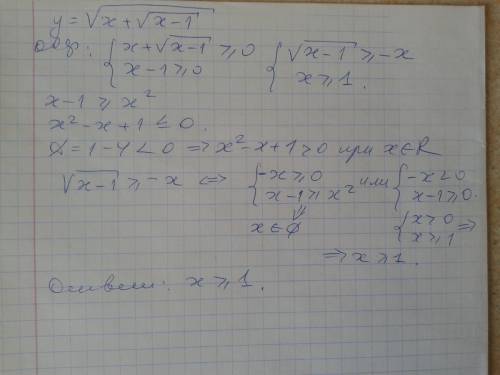 y = √(x + √(x-1))
одз: { x + √(x-1) ≥ 0 { √(x-1) ≥ -x
{ x-1 ≥ 0 { x ≥ 1.
x-1 ≥ x²
x² - x + 1 ≤ 0.
D = 1-4 < 0 ⇒ x² - x + 1 > 0 при x ∈ R
√(x-1) ≥ -x ⇔ { -x ≥ 0 или { -x < 0
{ x-1 ≥ x² { x-1 ≥ 0.
⇓ { x > 0 ⇒
x ∈ ∅ { x ≥ 1
⇒ x ≥ 1.
Ответ: x ≥ 1.